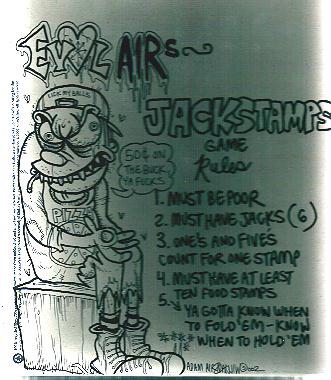 EVOL AIRS
LICK MY BALLS
JACKSTAMPS
GAME
Rules
50¢ ON
THE BUCK
YA FUCKS.
PIZZA
1. MUST BE POOR
2. MUST HAVE JACKS (6)
3. ONE'S AND FIVES
COUNT FOR ONE STAMP
4. MUST HAVE AT LEAST
TEN FOOD STAMPS
5. YA GOTTA KNOW WHEN
TO FOLD 'EM-KNOW
WHEN TO HOLD 'EM
ADAM